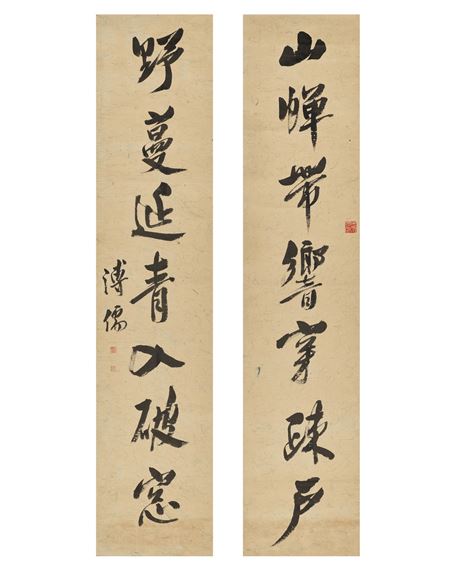 山蟬帶響穿疎戶
野蔓延青入破窓
溥儒